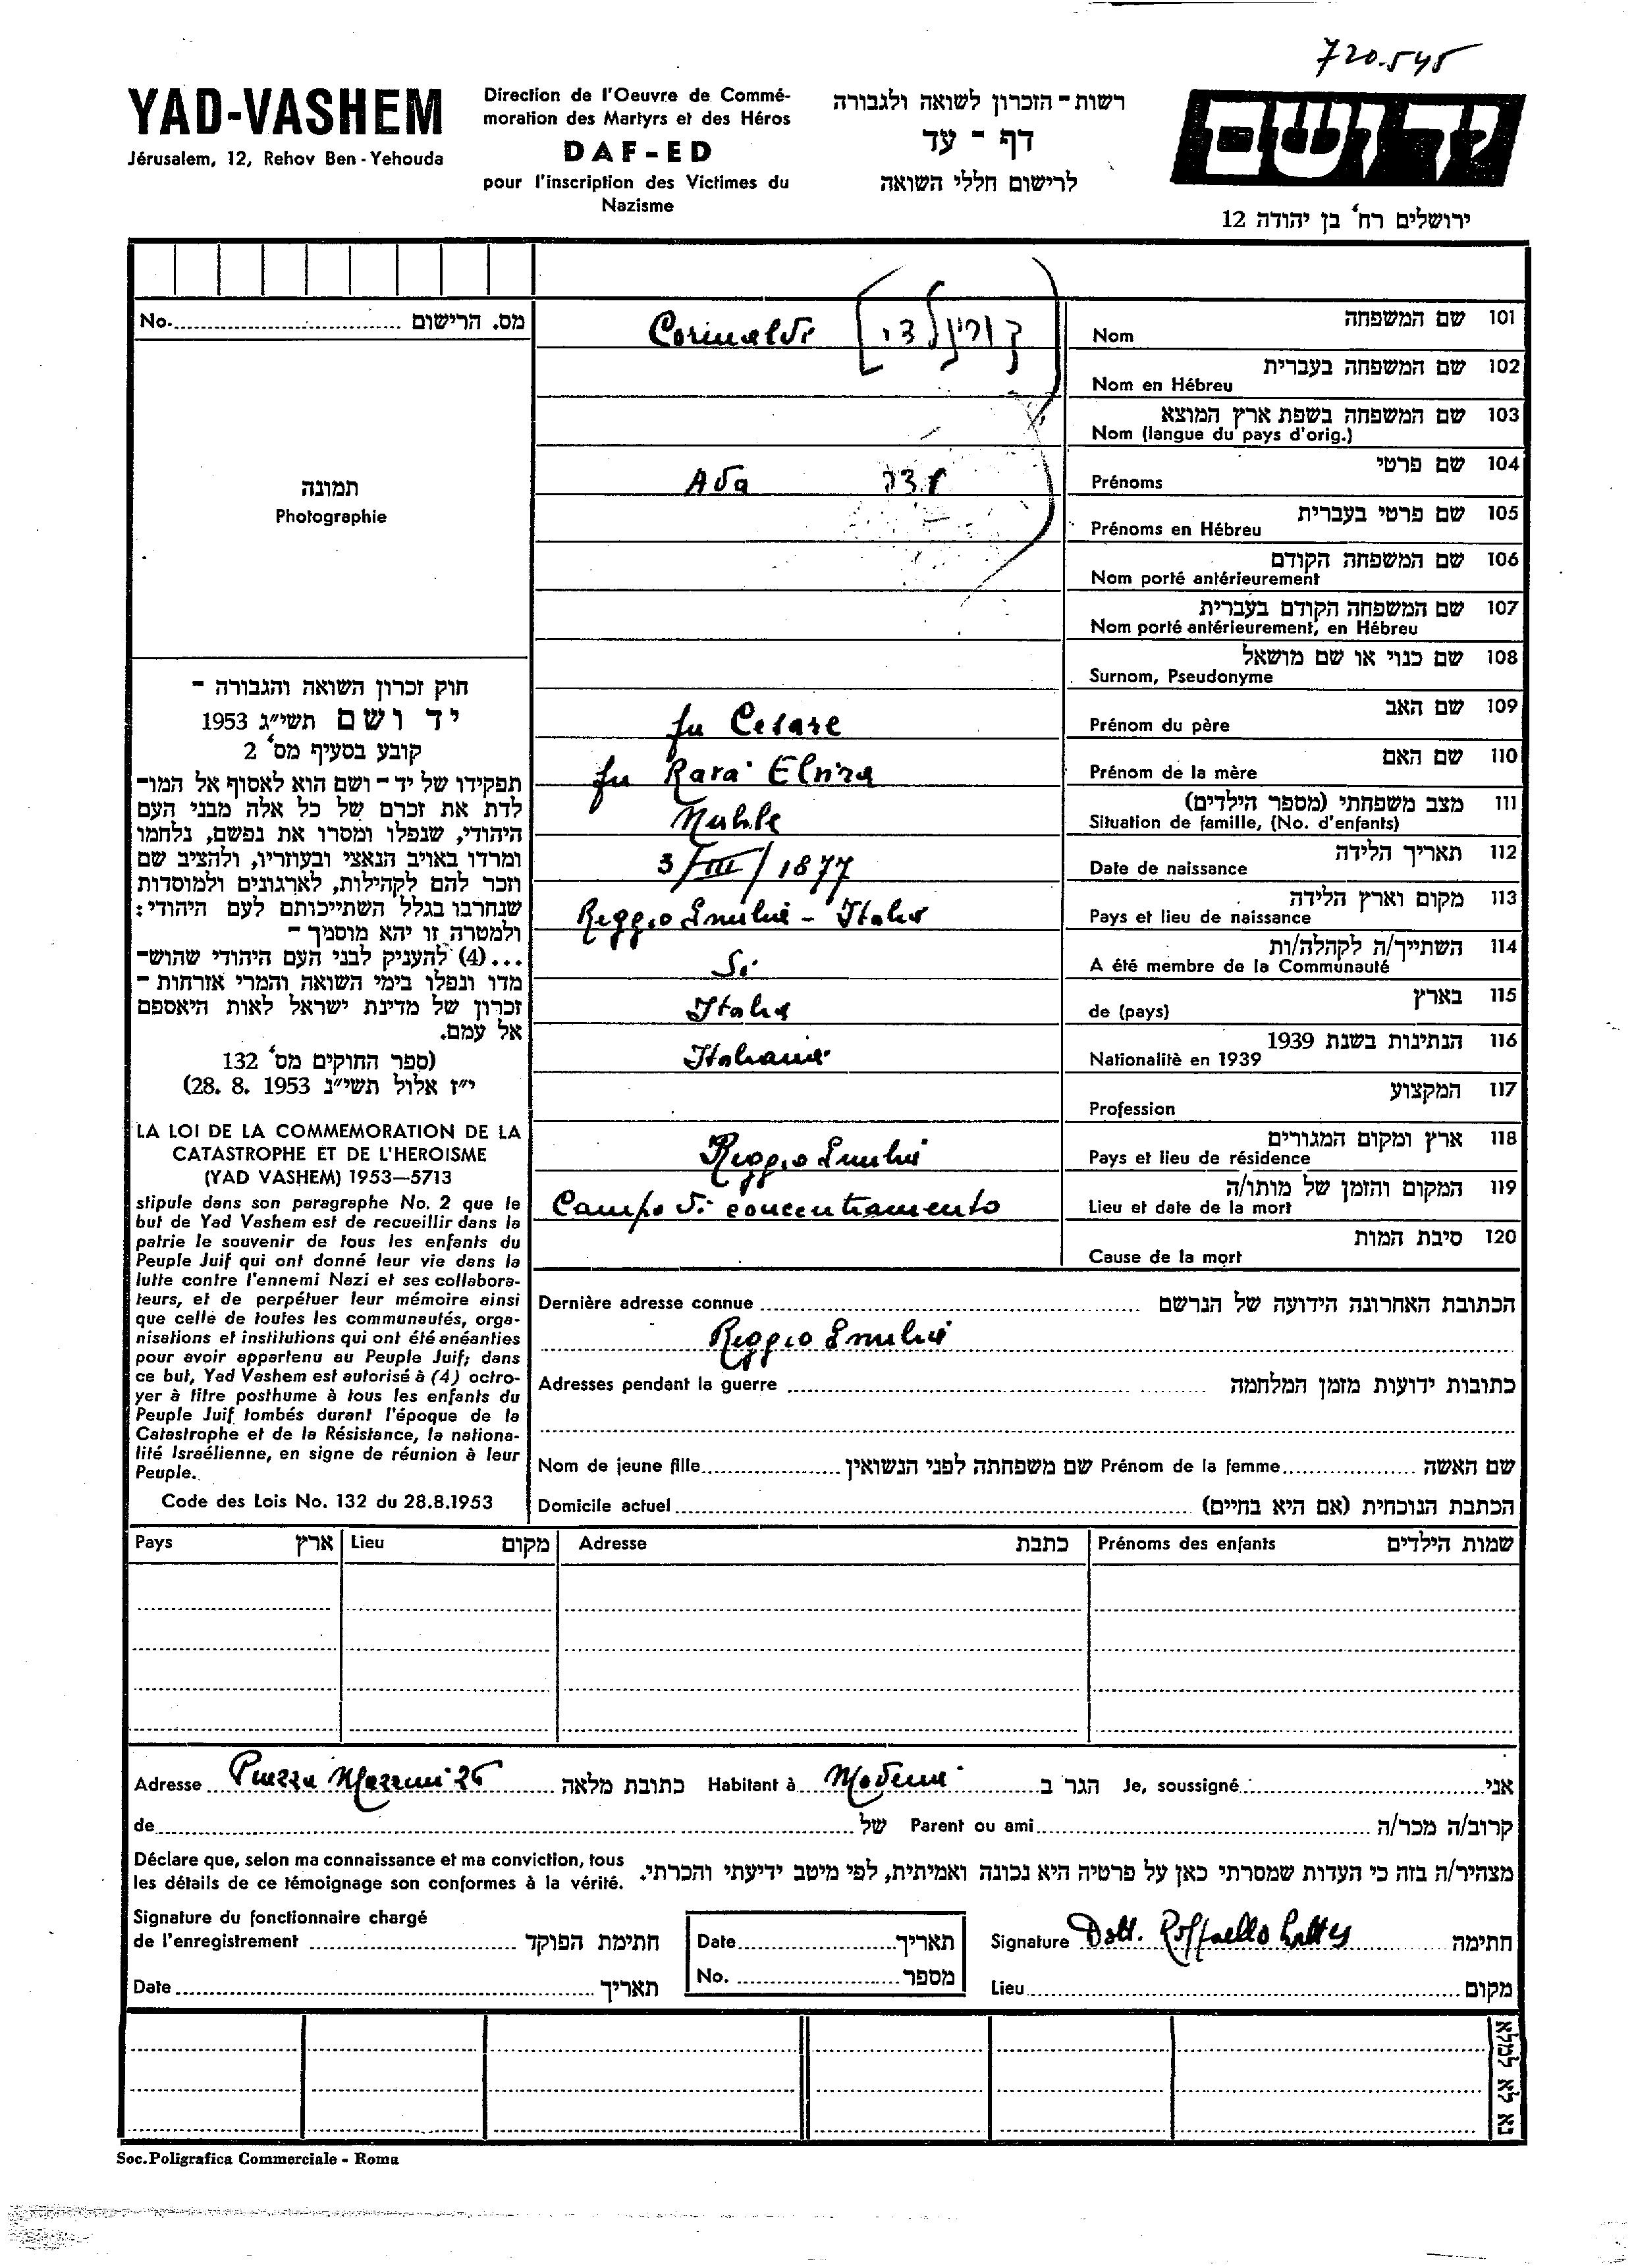 720.545
YAD-VASHEM
Jérusalem, 12, Rehov Ben-Yehouda
Direction de l'Oeuvre de Commé-
moration des Martyrs et des Héros
DAF-ED
pour l'inscription des Victimes du
Nazisme
רשות-הזכרון לשואה ולגבורה
דף - עד
לרישום חללי השואה
ידושם
ירושלים רח' בן יהודה 12
No. מס. הרישום
תמונה
Photographie
חוק זכרון השואה והגבורה -
יד ושם תשי״ג 1953
קובע בסעיף מס' 2
תפקידו של יד-ושם הוא לאסוף אל המו-
לדת את זכרם של כל אלה מבני העם
היהודי, שנפלו ומסרו את נפשם, נלחמו
ומרדו באויב הנאצי ובעוזריו, ולהציב שם
וזכר להם לקהילות, לארגונים ולמוסדות
שנחרבו בגלל השתייכותם לעם היהודי:
ולמטרה זו יהא מוסמך-
...(4) להעניק לבני העם היהודי שהוש-
מדו ונפלו בימי השואה והמרי אזרחות -
זכרון של מדינת ישראל לאות היאספם
אל עמם.
(ספר החוקים מס' 132
י״ז אלול תשי״ג 28. 8. 1953)
LA LOI DE LA COMMEMORATION DE LA
CATASTROPHE ET DE L'HEROISME
(YAD VASHEM) 1953—5713
stipule dans son paragraphe No. 2 que le
but de Yad Vashem est de recueillir dans la
patrie le souvenir de tous les enfants du
Peuple Juif qui ont donné leur vie dans la
lutte contre l'ennemi Nazi et ses collabora-
teurs, et de perpétuer leur mémoire ainsi
que celle de toutes les communautés, orga-
nisations et institutions qui ont été anéanties
pour avoir appartenu au Peuple Juif; dans
ce but, Yad Vashem est autorisé à (4) octro-
yer à titre posthume à tous les enfants du
Peuple Juif tombés durant l'époque de la
Catastrophe et de la Résistance, la nationa-
lité Israélienne, en signe de réunion à leur
Peuple.
Code des Lois No. 132 du 28.8.1953
101 שם המשפחה
Nom Corinaldi [קורינלדי]
102 שם המשפחה בעברית
Nom en Hébreu
103 שם המשפחה בשפת ארץ המוצא
Nom (langue du pays d'orig.)
104 שם פרטי
Prénoms Ada עדה
105 שם פרטי בעברית
Prénoms en Hébreu
106 שם המשפחה הקודם
Nom porté antérieurement
107 שם המשפחה הקודם בעברית
Nom porté antérieurement, en Hébreu
108 שם כנוי או שם מושאל
Surnom, Pseudonyme
109 שם האב
Prénom du père fu Cesare
110 שם האם
Prénom de la mère fu Rava' Elvira
111 מצב משפחתי (מספר הילדים)
Situation de famille, (No. d'enfants) Nubile
112 תאריך הלידה
Date de naissance 3/III/1877
113 מקום וארץ הלידה
Pays et lieu de naissance Reggio Emilia - Italia
114 השתייך/ה לקהלה/ות
A été membre de la Communauté Si
115 בארץ
de (pays) Italia
116 הנתינות בשנת 1939
Nationalitè en 1939 Italiana
117 המקצוע
Profession
118 ארץ ומקום המגורים
Pays et lieu de résidence Reggio Emilia
119 המקום והזמן של מותו/ה
Lieu et date de la mort Campo di concentramento
120 סיבת המות
Cause de la mort
Dernière adresse connue הכתובת האחרונה הידועה של הנרשם
Reggio Emilia
Adresses pendant la guerre כתובות ידועות מזמן המלחמה
Nom de jeune fille שם משפחתה לפני הנשואין Prénom de la femme שם האשה
Domicile actuel הכתבת הנוכחית (אם היא בחיים)
Pays ארץ Lieu מקום Adresse כתבת Prénoms des enfants שמות הילדים
Adresse Piazza Mazzini 26 כתובת מלאה Habitant à Modena הגר ב Je, soussigné אני
de של Parent ou ami קרוב/ה מכר/ה
Déclare que, selon ma connaissance et ma conviction, tous
les détails de ce témoignage son conformes à la vérité.
מצהיר/ה בזה כי העדות שמסרתי כאן על פרטיה היא נכונה ואמיתית, לפי מיטב ידיעתי והכרתי.
Signature du fonctionnaire chargé
de l'enregistrement חתימת הפוקד
Date תאריך
Date תאריך
No. מספר
Signature Dott. Raffaello Lattes חתימה
Lieu מקום
נא לא למלא
Soc.Poligrafica Commerciale - Roma